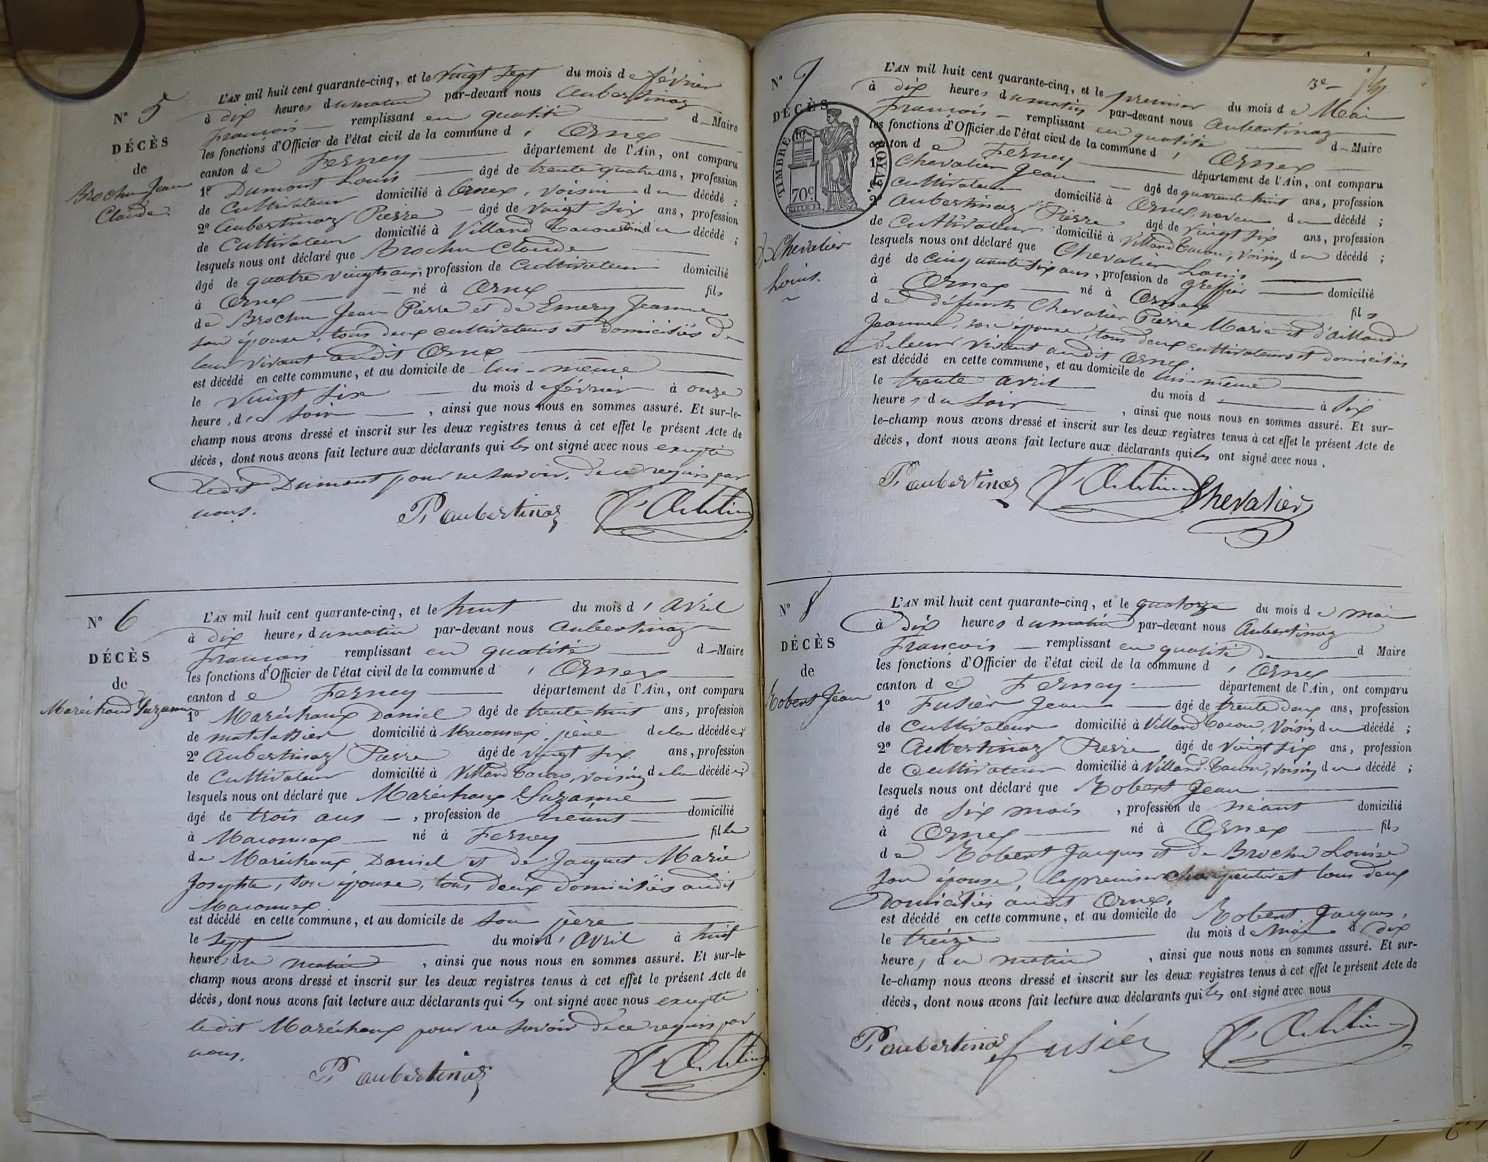 N° 5
DÉCÈS
de
Brochu Jean
Claude.
L'AN mil huit cent quarante-cinq, et le vingt sept du mois de février
à dix heures du matin par-devant nous Aubertinaz
François remplissant en qualité d Maire
les fonctions d'Officier de l'état civil de la commune d' Ornex
canton de Ferney département de l'Ain, ont comparu
1° Dumont Louis âgé de trente quatre ans, profession
de Cultivateur domicilié à Ornex voisin du décédé ;
2° Aubertinaz Pierre âgé de vingt six ans, profession
de Cultivateur domicilié à Villard Tacon du décédé ;
lesquels nous ont déclaré que Brochu Claude
âgé de quatre vingt ans, profession de Cultivateur domicilié
à Ornex né à Ornex fils
de Brochu Jean Pierre et de Emery Jeanne
son épouse, tous deux cultivateurs et domiciliés de
leur vivant audit Ornex
est décédé en cette commune, et au domicile de lui-même
le vingt six du mois de février à onze
heure, du soir , ainsi que nous nous en sommes assuré. Et sur-le-
champ nous avons dressé et inscrit sur les deux registres tenus à cet effet le présent Acte de
décès, dont nous avons fait lecture aux déclarants qui les ont signé avec nous excepté
ledit Dumont pour ne savoir, de ce requis par
nous.
P. aubertinaz
N° 6
DÉCÈS
de
Maréchaux Suzanne
L'AN mil huit cent quarante-cinq, et le huit du mois d' avril
à dix heures du matin par-devant nous Aubertinaz
François remplissant en qualité d Maire
les fonctions d'Officier de l'état civil de la commune d' Ornex
canton de Ferney département de l'Ain, ont comparu
1° Maréchaux Daniel âgé de trente huit ans, profession
de domicilié à Maconnex père de la décédée
2° Aubertinaz Pierre âgé de vingt six ans, profession
de Cultivateur domicilié à Villard Tacon, voisin de la décédée
lesquels nous ont déclaré que Maréchaux Suzanne
âgé de trois ans , profession de néant domicilié
à Maconnex né à Ferney fille
de Maréchaux Daniel et de Jacquet Marie
Josephte, son épouse, tous deux domiciliés audit
Maconnex
est décédé en cette commune, et au domicile de son père
le sept du mois d' avril à huit
heure, du matin , ainsi que nous nous en sommes assuré. Et sur-le-
champ nous avons dressé et inscrit sur les deux registres tenus à cet effet le présent Acte de
décès, dont nous avons fait lecture aux déclarants qui les ont signé avec nous excepté
ledit Maréchaux pour ne savoir de ce requis par
nous.
P. aubertinaz
3e
N° 7
DÉCÈS
TIMBRE ROYAL
70c
Chevalier
Louis.
L'AN mil huit cent quarante-cinq, et le premier du mois de Mai
à dix heures du matin par-devant nous Aubertinaz
François remplissant en qualité d Maire
les fonctions d'Officier de l'état civil de la commune d' Ornex
canton de Ferney département de l'Ain, ont comparu
1° Chevalier Jean âgé de quarante huit ans, profession
cultivateur domicilié à Ornex, neveu du décédé ;
2° Aubertinaz Pierre âgé de vingt six ans, profession
de Cultivateur domicilié à Villard Tacon, voisin du décédé ;
lesquels nous ont déclaré que Chevalier Louis
âgé de cinquante six ans, profession de greffier domicilié
à Ornex né à Ornex fils
de défunts Chevalier Pierre Marie et d'aillaud
Jeanne, son épouse, tous deux cultivateurs et domiciliés
de leur vivant audit Ornex.
est décédé en cette commune, et au domicile de lui-même
le trente avril du mois d à six
heures du soir , ainsi que nous nous en sommes assuré. Et sur-
le-champ nous avons dressé et inscrit sur les deux registres tenus à cet effet le présent Acte de
décès, dont nous avons fait lecture aux déclarants qui les ont signé avec nous .
P. aubertinaz Chevalier
N° 8
DÉCÈS
de
Robert Jean
L'AN mil huit cent quarante-cinq, et le quatorze du mois de mai
à dix heures du matin par-devant nous Aubertinaz
François remplissant en qualité d Maire
les fonctions d'Officier de l'état civil de la commune d' Ornex
canton de Ferney département de l'Ain, ont comparu
1° Fusier Jean âgé de trente deux ans, profession
de Cultivateur domicilié à Villard Tacon, Voisin du décédé ;
2° Aubertinaz Pierre âgé de vingt six ans, profession
de Cultivateur domicilié à Villard Tacon, voisin du décédé ;
lesquels nous ont déclaré que Robert Jean
âgé de six mois , profession de néant domicilié
à Ornex né à Ornex fils
de Robert Jacques et de Brochu Louise
son épouse, le premier charpentier et tous deux
Domiciliés audit Ornex.
est décédé en cette commune, et au domicile de Robert Jacques,
le treize du mois de Mai à dix
heure, du matin , ainsi que nous nous en sommes assuré. Et sur-
le-champ nous avons dressé et inscrit sur les deux registres tenus à cet effet le présent Acte de
décès, dont nous avons fait lecture aux déclarants qui les ont signé avec nous
P. aubertinaz fusier